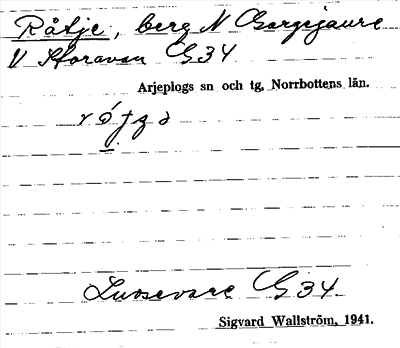 Råtje, berg N Gargijaure
V Storavan G34
Arjeplogs sn och tg, Norrbottens län.
Luossevare G34
Sigvard Wallström, 1941.